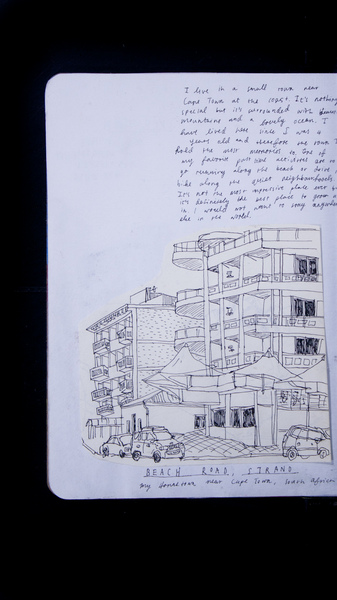 I live in a small town near
Cape Town at the coast. It's nothing
special but it's surrounded with
mountains and a lovely ocean. I
have lived here since I was a
years old and therefore the town I
hold the most memories in. One of
my favourite past time activities are to
go running along the beach or drive /
hike along the quiet neighbourhoods.
It's not the most impressive place ever but
it's definitely the best place to grow
in. I would not want to stay anywhere
else in the world.
BEACH ROAD, STRAND
My hometown near Cape Town, South Africa